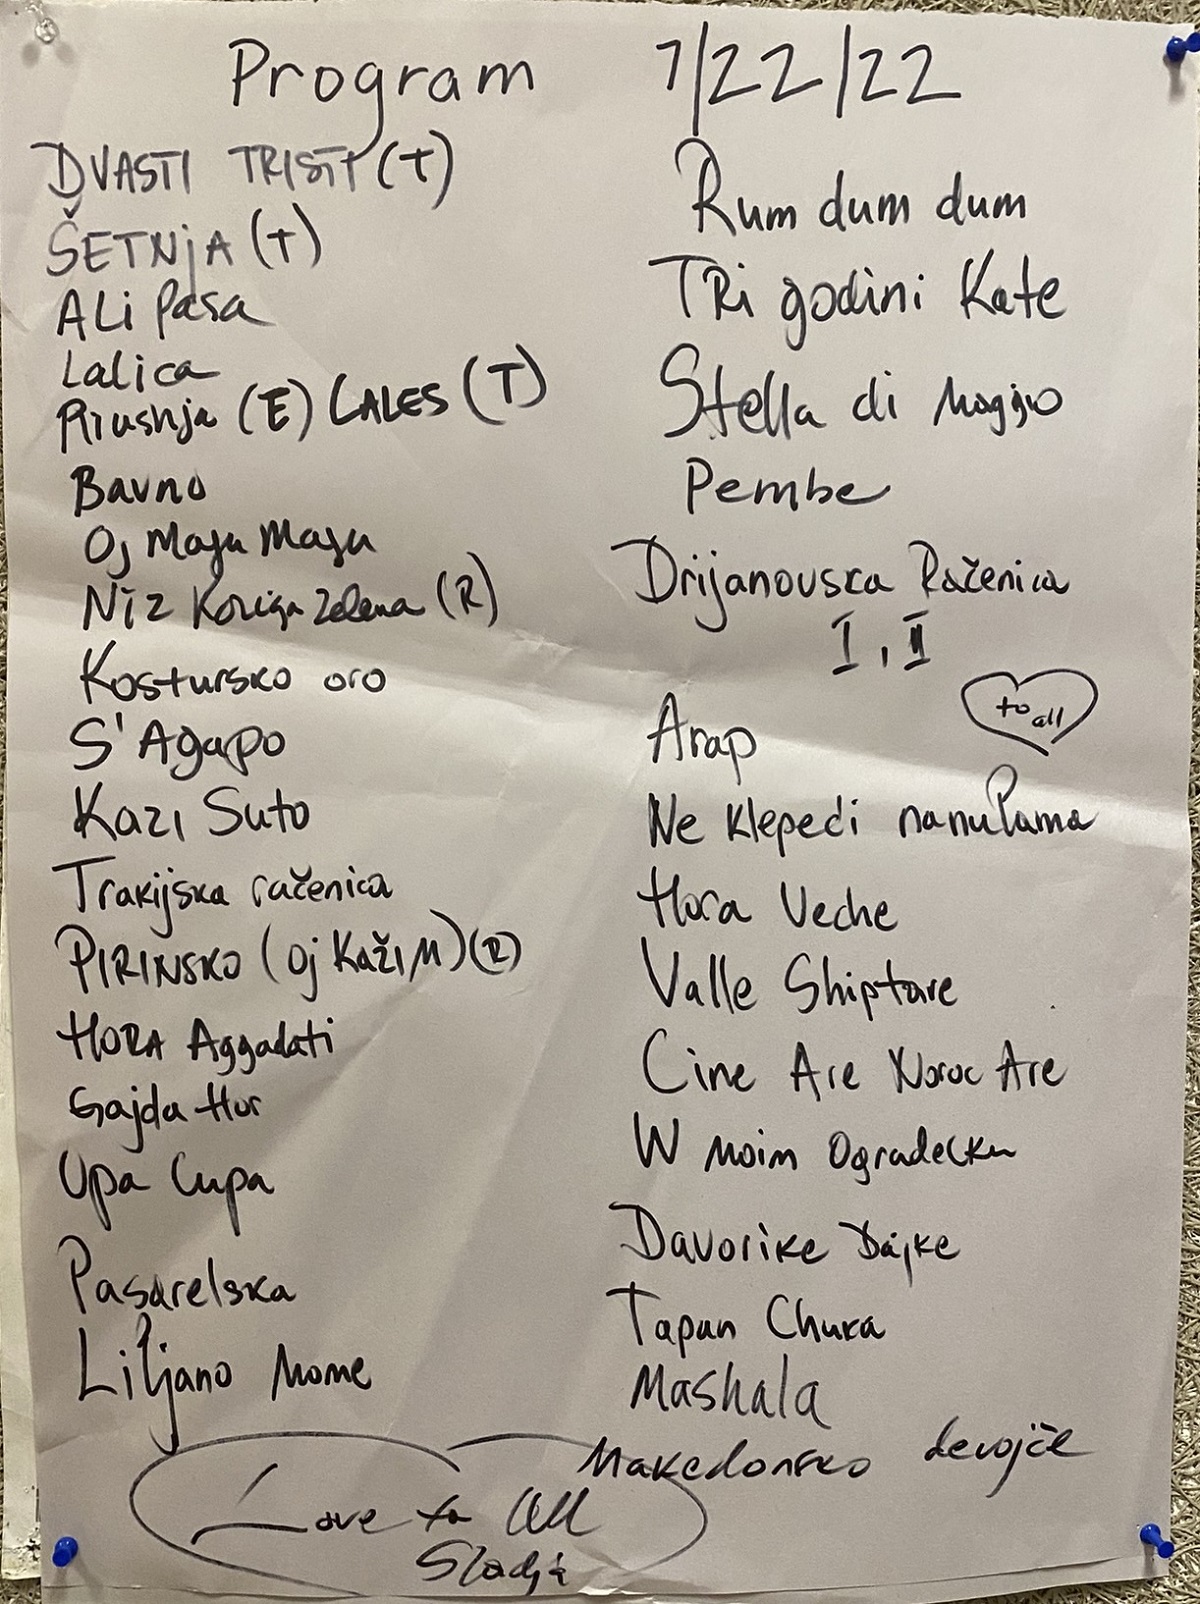 Program 7/22/22
DVASTI TRISTI (T)
ŠETNjA (T)
ALi Pasa
Lalica
(E) LALES (T)
Bavno
Oj Maju Maju
Niz Zelena (R)
Kostursko oro
S'Agapo
Kazi Suto
Trakijska račenica
PIRINSKO (Oj KAŽI M) (R)
HORA Aggadati
Gajda Hor
Upa Cupa
Pasarelska
Liljano Mome
Love to All
Sladja
Rum dum dum
TRi godini Kate
Stella di Maggio
Pembe
Drijanovska Račenica
I, II
to all
Arap
Ne Klepeći nanulama
Hora Veche
Valle Shiptare
Cine Are Noroc Are
W Moim Ogradecku
Davorike Dajke
Tapan Chuka
Mashala
Makedonsko devojče